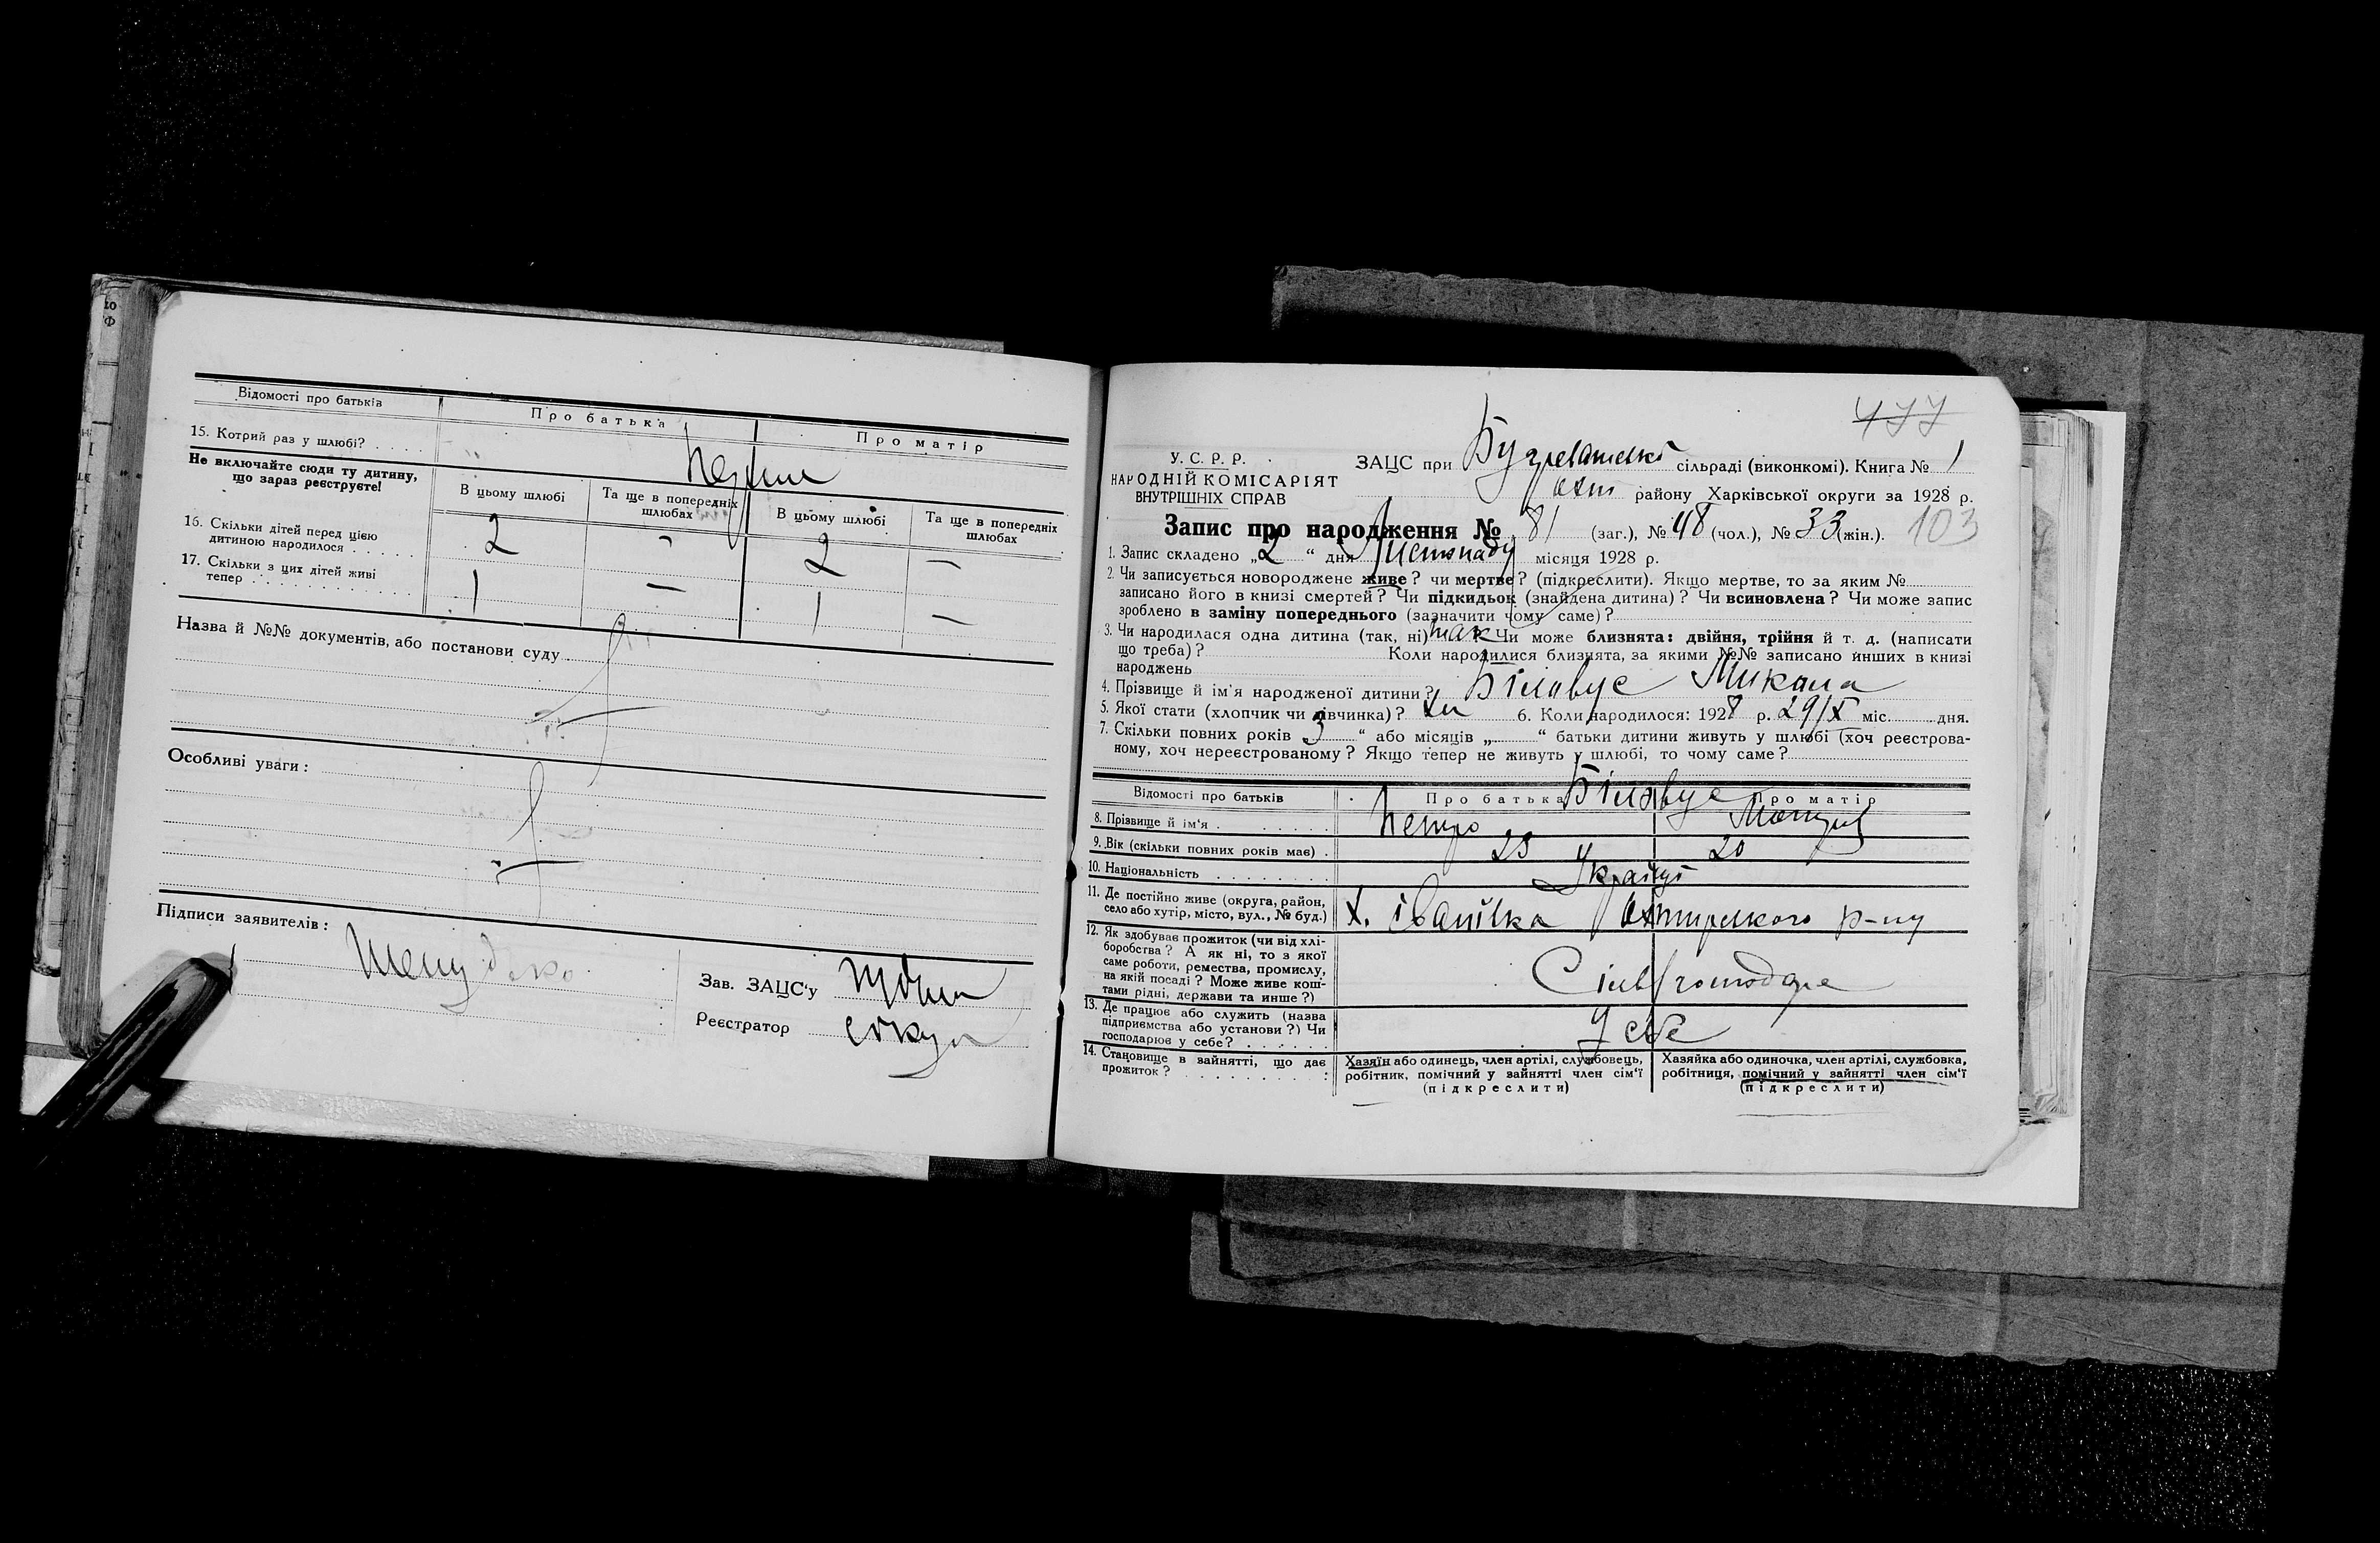 Відомості про батьків
Про батька
Про матір
15. Котрий раз у шлюбі? . . . .
Не включайте сюди ту дитину,
що зараз реєструєте!
В цьому шлюбі
Та ще в попередніх
шлюбах
В цьому шлюбі
Та ще в попередніх
шлюбах
16. Скільки дітей перед цією
дитиною народилося . . . . . .
2 — 2 —
17. Скільки з цих дітей живі
тепер . . . . . . . . . . . .
1 — 1 —
Назва й №№ документів, або постанови суду
Особливі уваги:
Підписи заявителів:
Зав. ЗАЦС'у
Реєстратор
477
У. С. Р. Р.
НАРОДНІЙ КОМІСАРІЯТ
ВНУТРІШНІХ СПРАВ
ЗАЦС при сільраді (виконкомі). Книга № 1
Охт району Харківської округи за 1928 р.
Запис про народження № 81 (заг.), № 48 (чол.), № 33 (жін.). 103
1. Запис складено „2“ дня Листопаду місяця 1928 р.
2. Чи записується новороджене живе? чи мертве? (підкреслити). Якщо мертве, то за яким №
записано його в книзі смертей? Чи підкидьок (знайдена дитина)? Чи всиновлена? Чи може запис
зроблено в заміну попереднього (зазначити чому саме)?
3. Чи народилася одна дитина (так, ні) так Чи може близнята: двійня, трійня й т. д. (написати
що треба)? Коли народилися близнята, за якими №№ записано инших в книзі
народжень
4. Прізвище й ім'я народженої дитини? Білавус Микола
5. Якої стати (хлопчик чи дівчинка)? 6. Коли народилося: 1928 р. 29/X міс. дня.
7. Скільки повних років „3“ або місяців „ “ батьки дитини живуть у шлюбі (хоч реєстрова-
ному, хоч нереєстрованому? Якщо тепер не живуть у шлюбі, то чому саме?
Відомості про батьків
Про батька
Про матір
Білавус
8. Прізвище й ім'я . . . . . . . .
Петро
9. Вік (скільки повних років має) .
20
10. Національність . . . . . . . .
11. Де постійно живе (округа, район,
село або хутір, місто, вул., № буд.)
х. Іванівка Охтирського р-ну
12. Як здобуває прожиток (чи від хлі-
боробства? А як ні, то з якої
саме роботи, ремества, промислу,
на якій посаді? Може живе кош-
тами рідні, держави та инше?)
13. Де працює або служить (назва
підприємства або установи?) Чи
господарює у себе? . . . . . .
У себе
14. Становище в зайнятті, що дає
прожиток? . . . . . . . . . :
Хазяїн або одинець, член артілі, службовець,
робітник, помічний у зайнятті член сім'ї
(підкреслити)
Хазяйка або одиночка, член артілі, службовка,
робітниця, помічний у зайнятті член сім'ї
(підкреслити)